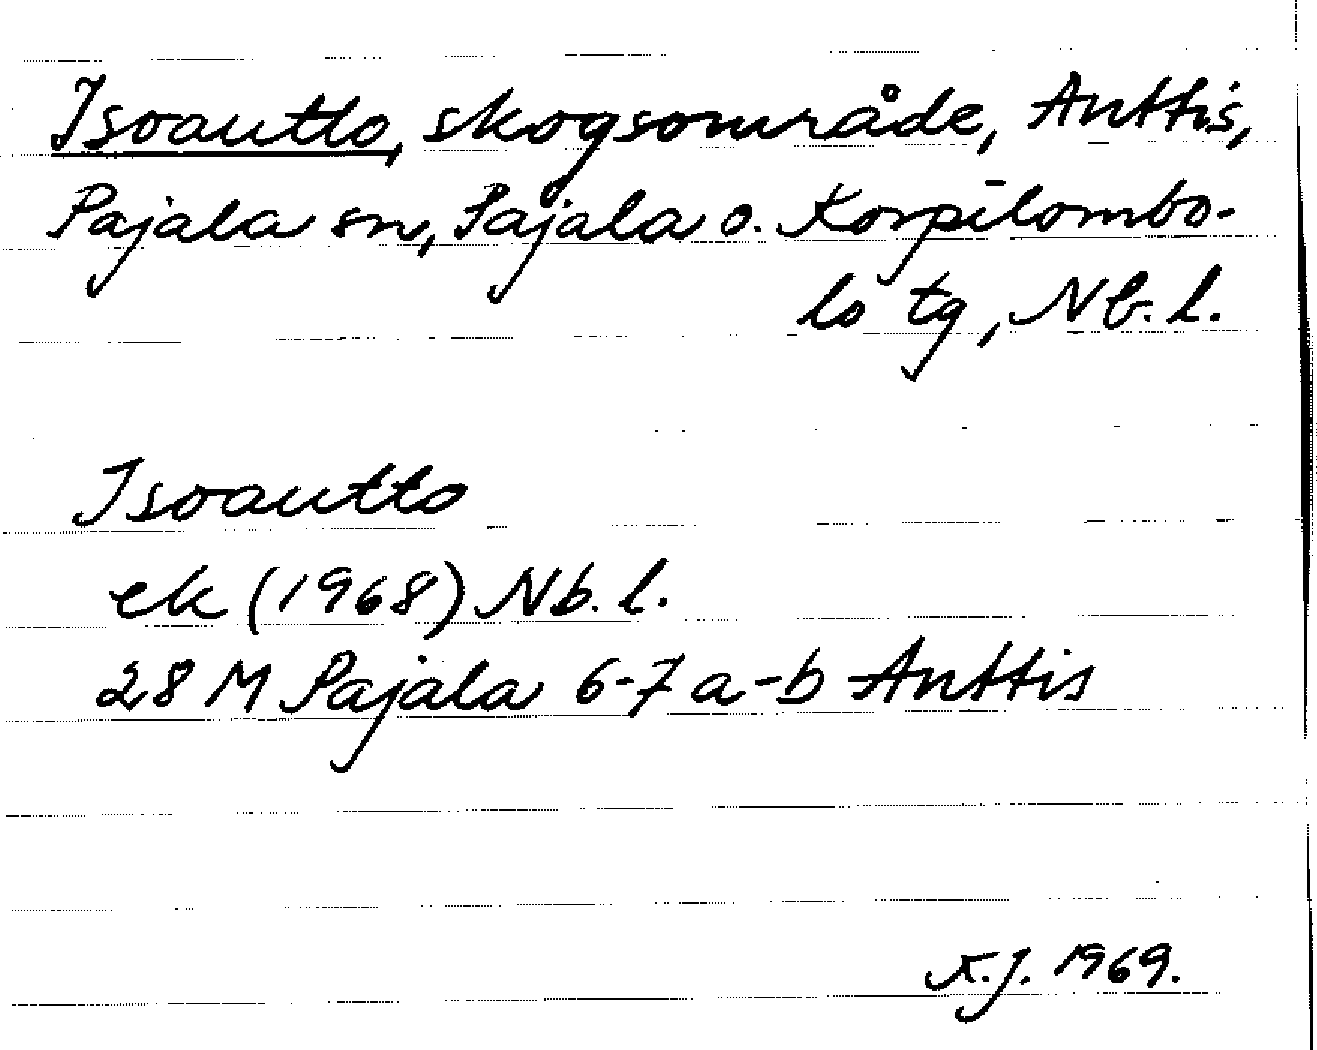 Isoautto, skogsområde, Anttis,
Pajala sn, Pajala o. Korpilombo-
lo tg, Nb. l.
Isoautto
ek (1968) Nb. l.
28 M Pajala 6-7 a-b Anttis
K.J. 1969.